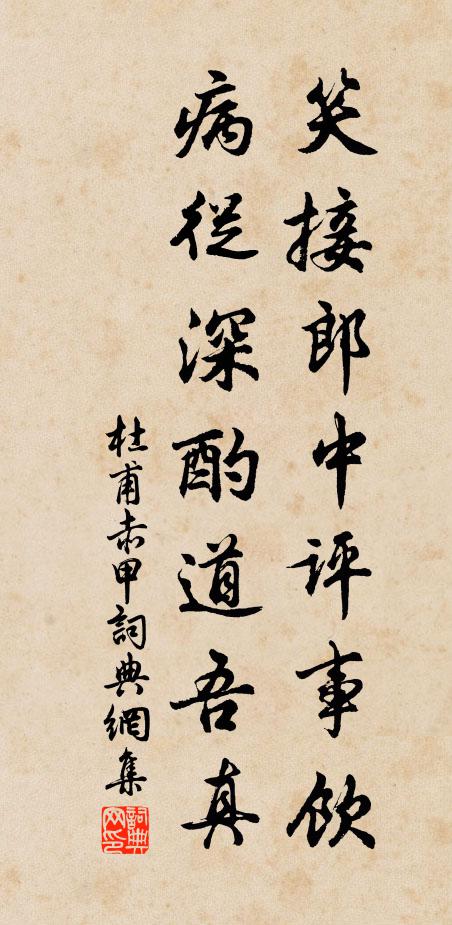 笑接郎中評事飲
病從深酌道吾真
杜甫赤甲詞典網集
詞典網印